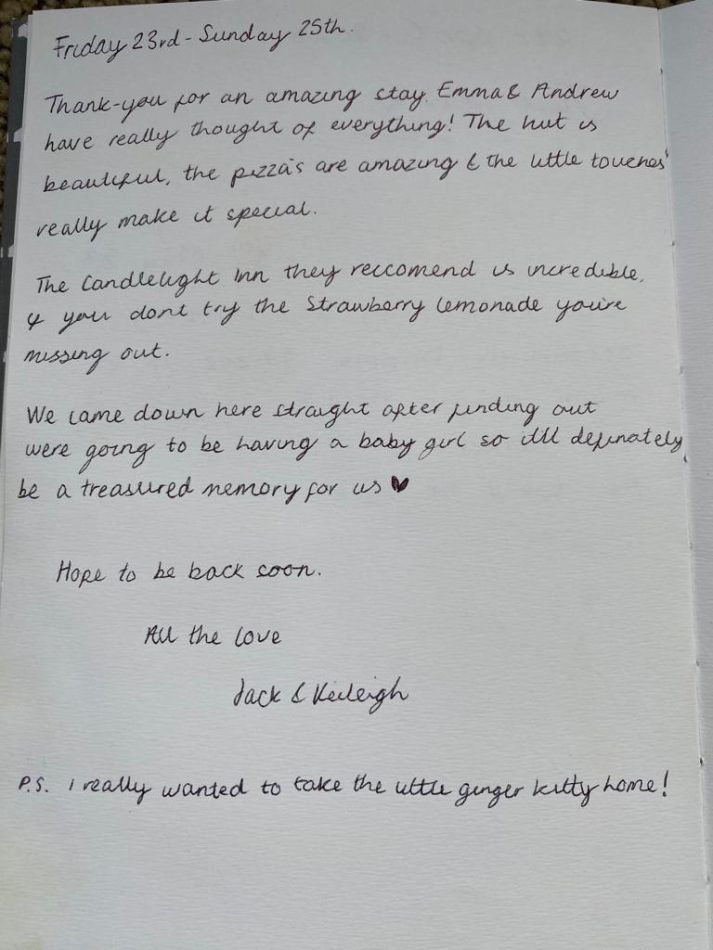 Friday 23rd - Sunday 25th.
Thank-you for an amazing stay. Emma & Andrew
have really thought of everything! The hut is
beautiful, the pizza's are amazing & the little touches
really make it special.
The Candlelight Inn they reccomend is incredible,
& you dont try the Strawberry Lemonade you're
missing out.
We came down here straight after finding out
were going to be having a baby girl so itll definately
be a treasured memory for us ♥
Hope to be back soon.
All the love
Jack & Keileigh
P.S. I really wanted to take the little ginger kitty home!